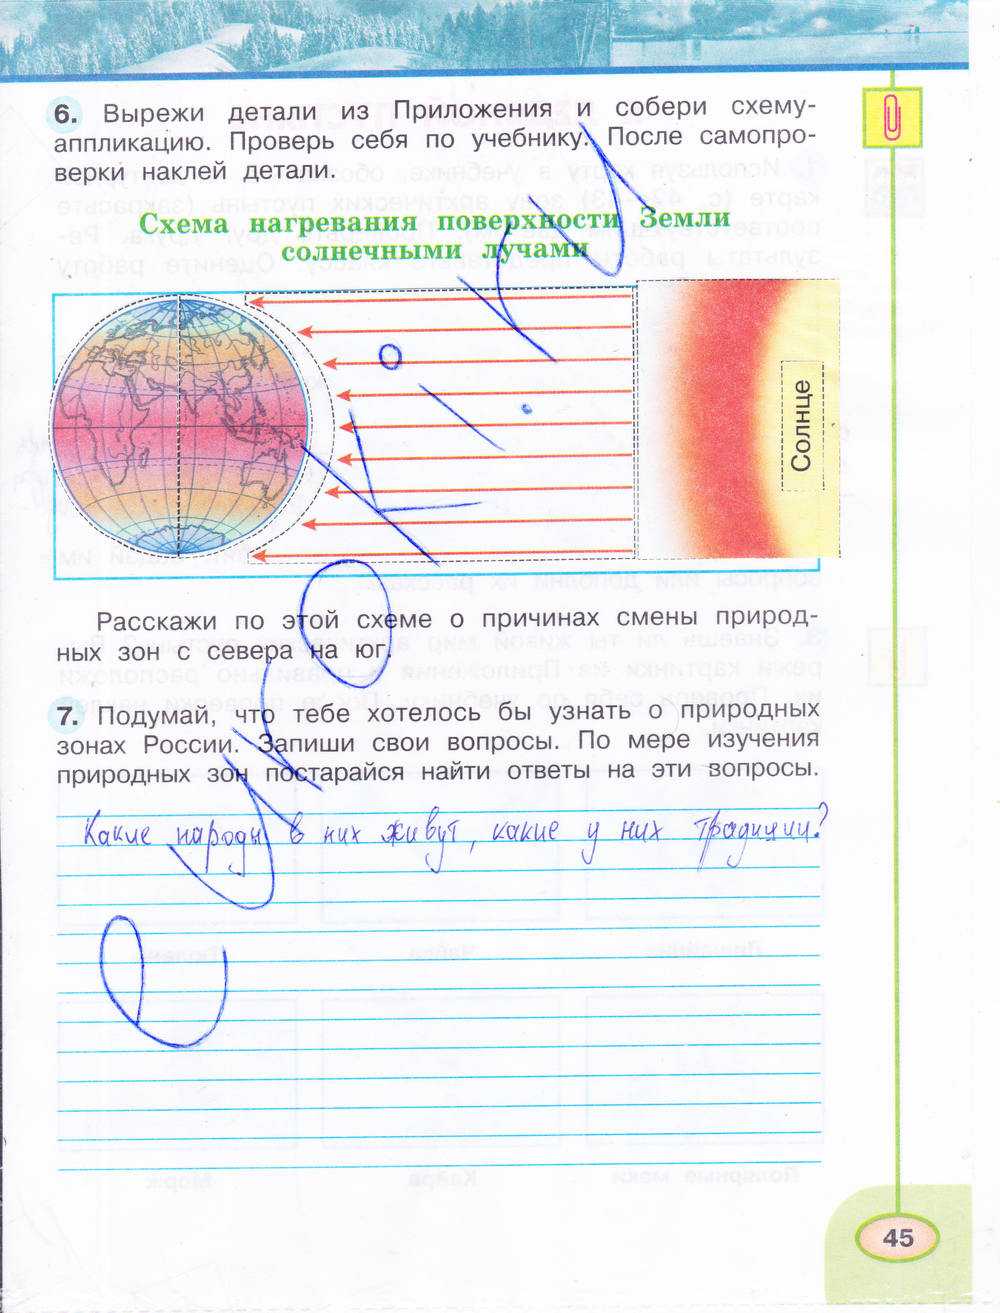 6. Вырежи детали из Приложения и собери схему-
аппликацию. Проверь себя по учебнику. После самопро-
верки наклей детали.
Схема нагревания поверхности Земли
солнечными лучами
Солнце
Расскажи по этой схеме о причинах смены природ-
ных зон с севера на юг.
7. Подумай, что тебе хотелось бы узнать о природных
зонах России. Запиши свои вопросы. По мере изучения
природных зон постарайся найти ответы на эти вопросы.
Какие народы в них живут, какие у них традиции?
45